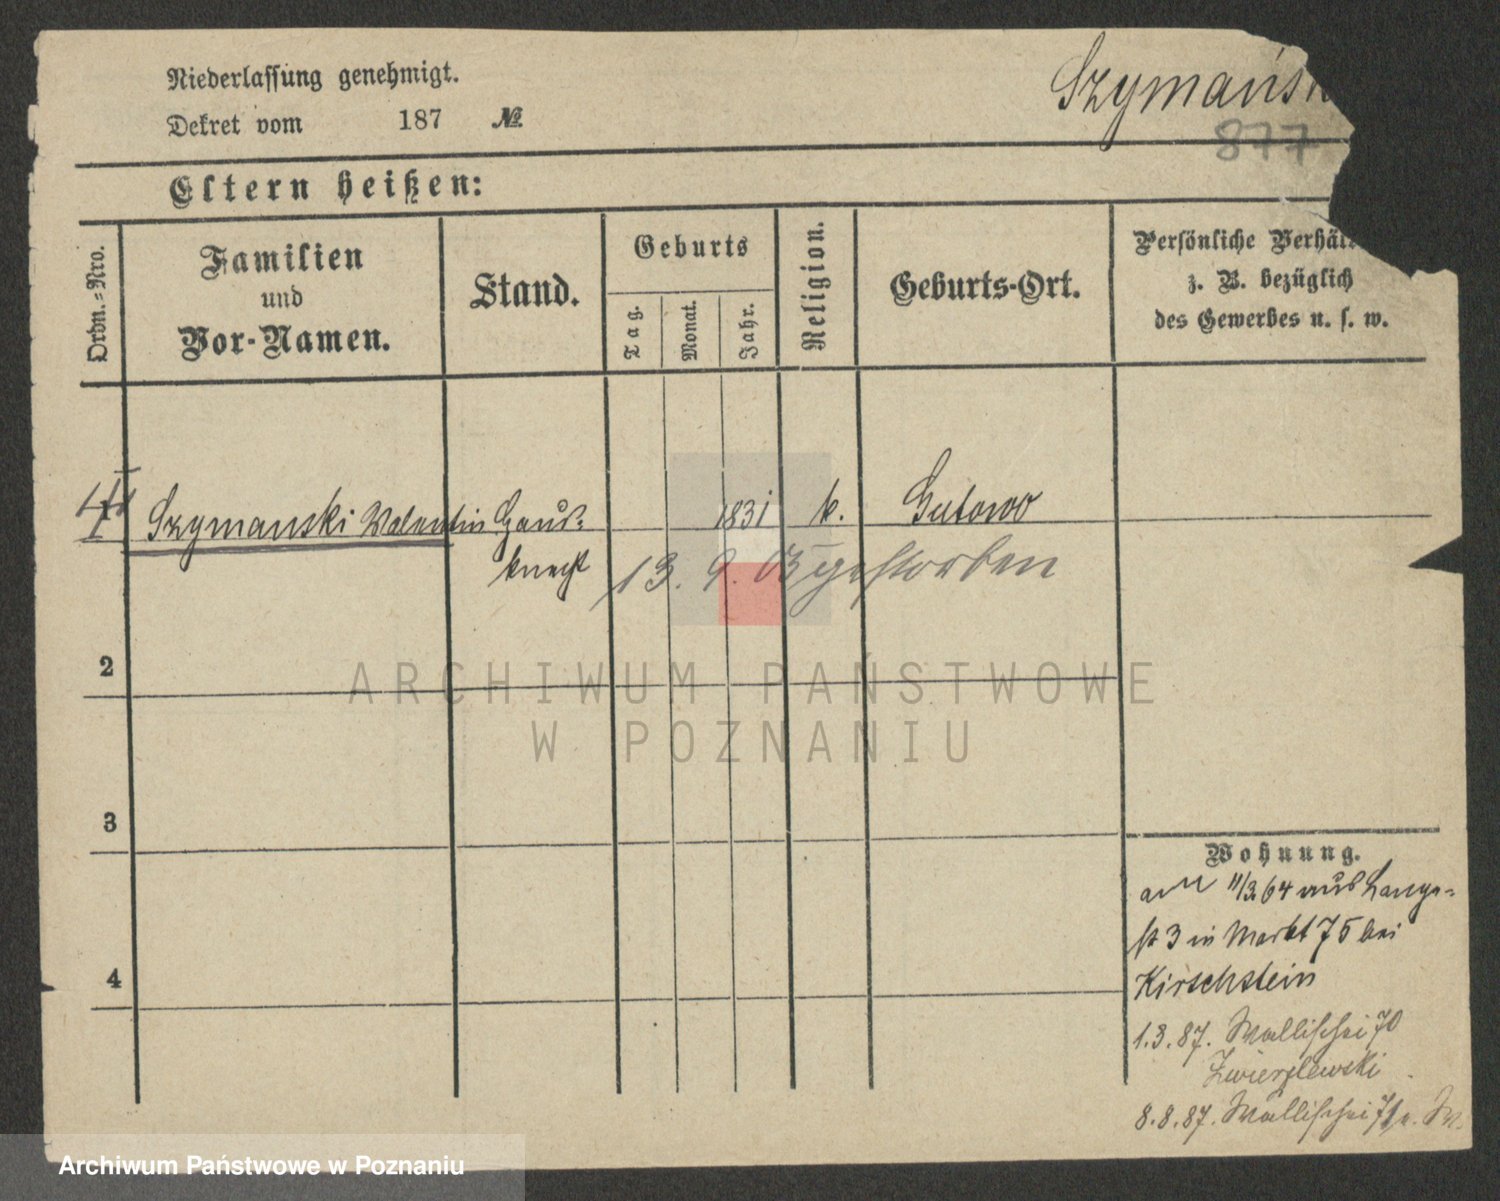 Niederlassung genehmigt.
Dekret vom 187 №
Szymańsk
877
Eltern heißen:
Ordn.=Nro.
Familien
und
Vor-Namen.
Stand.
Geburts
Tag.
Monat.
Jahr.
Religion.
Geburts-Ort.
Persönliche Verhäl
z. B. bezüglich
des Gewerbes u. s. w.
1
Szymanski Valentin Haus-
1831 k. Gutowo
knecht
13. 9. 03 gestorben
2
ARCHIWUM PAŃSTWOWE
W POZNANIU
3
4
Wohnung.
am 11/3 64 aus Lange-
st 3 in Markt 75 bei
Kirschstein
1.3.87. Wallischei 70
8.8.87. Wallischei
Archiwum Państwowe w Poznaniu